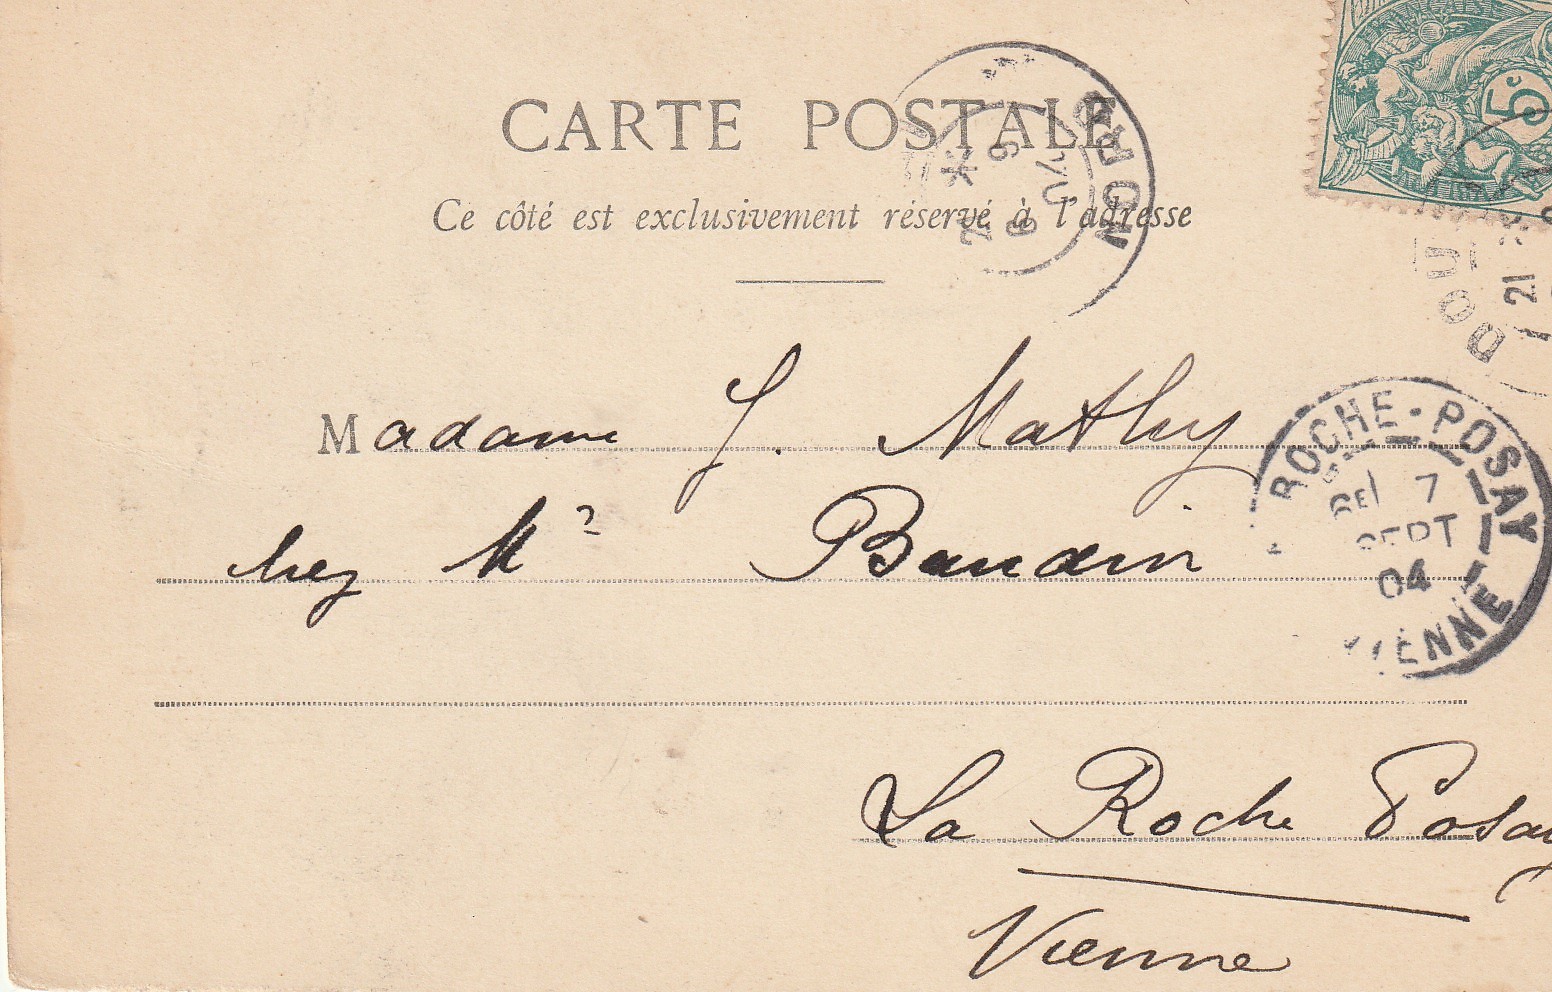 CARTE POSTALE
Ce côté est exclusivement réservé à l'adresse
NORD
5c
21
ROCHE-POSAY
7
SEPT
04
VIENNE
Madame J. Mathy
chez Mr Baudin
La Roche Posay
Vienne